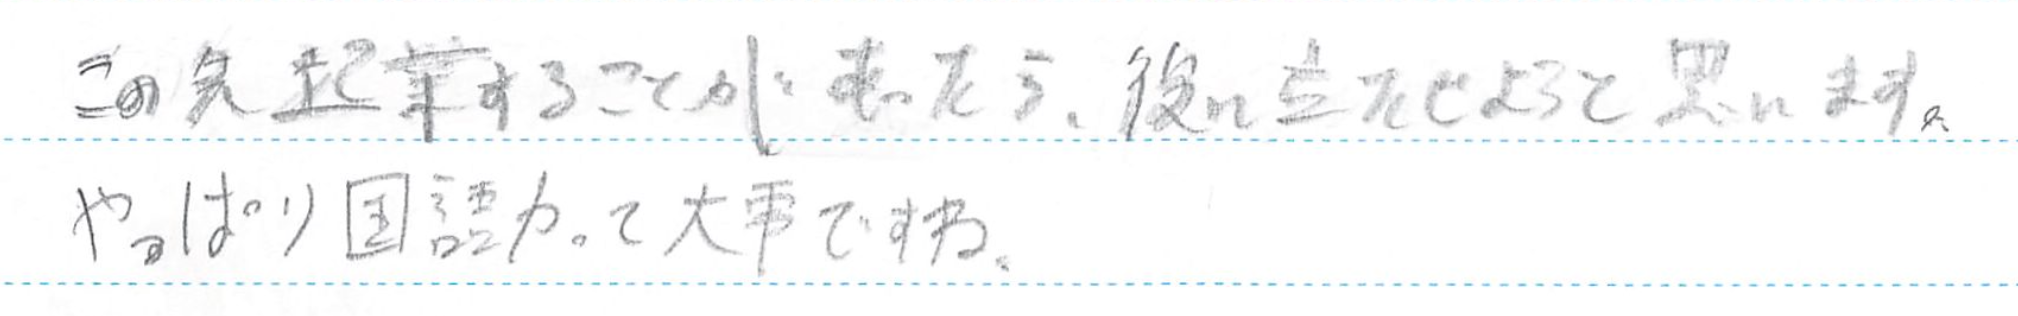 この先起業することがあったら、役に立たせようと思います。
やっぱり国語力って大事ですね。